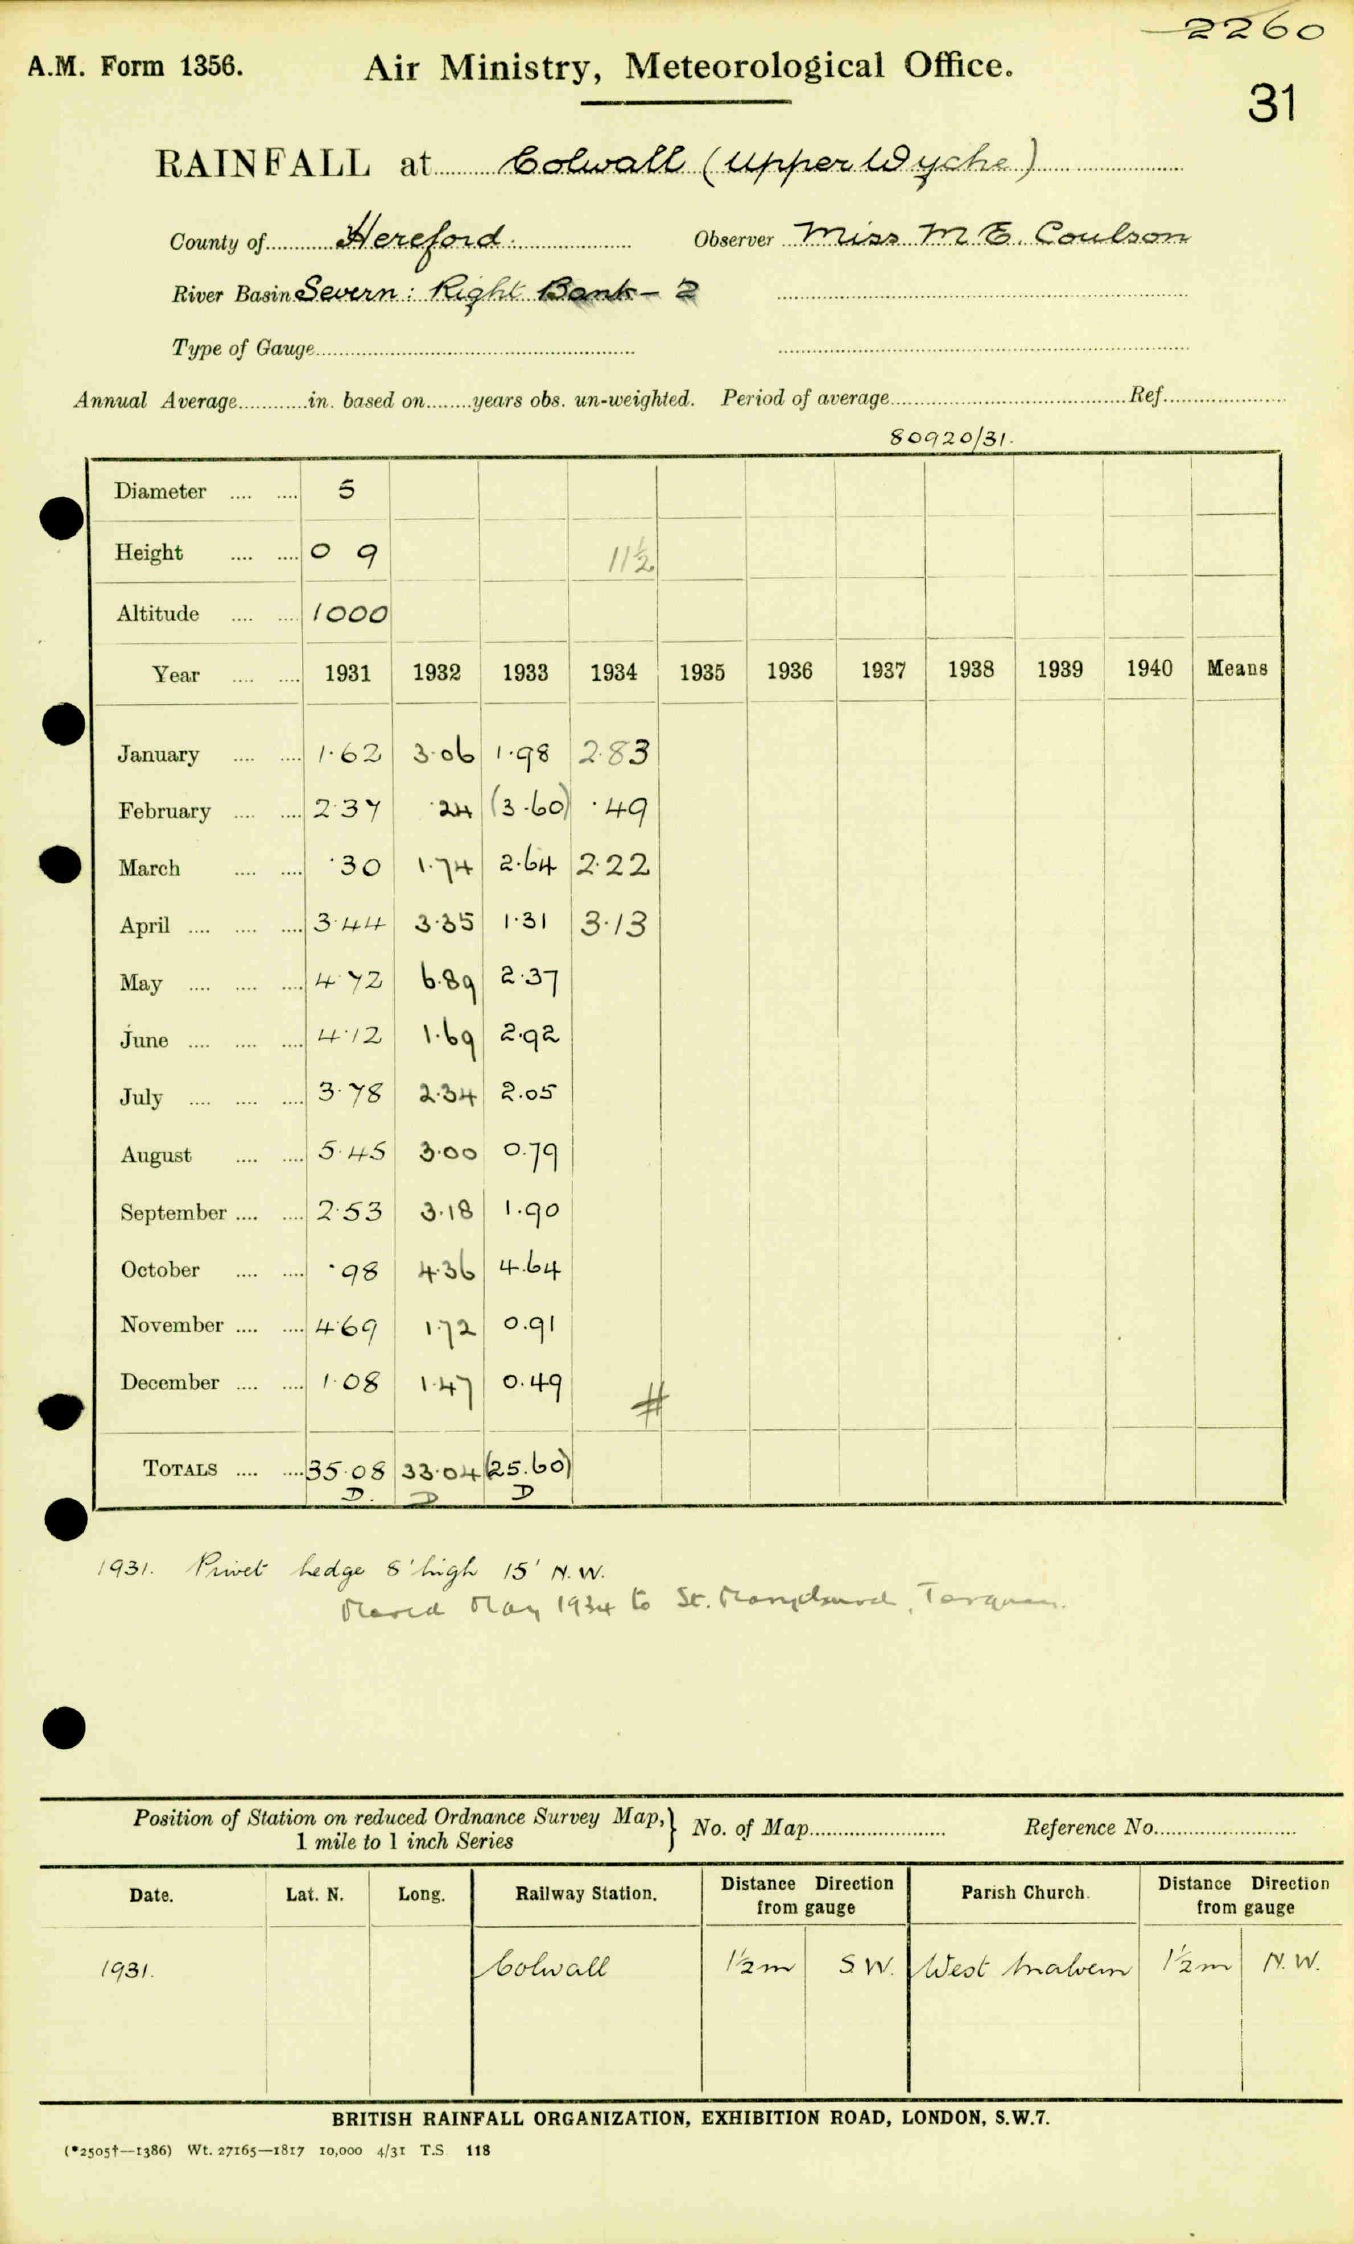 2260
A.M. Form 1356.
Air Ministry, Meteorological Office.
31
RAINFALL at Colwall (Upper Wyche)
County of Hereford. Observer Miss M E. Coulson
River Basin Severn: Right Bank - 2
Type of Gauge
Annual Average in. based on years obs. un-weighted. Period of average Ref.
80920/31.
Diameter 5
Height 0 9 11½
Altitude 1000
Year 1931 1932 1933 1934 1935 1936 1937 1938 1939 1940 Means
January 1·62 3·06 1·98 2·83
February 2·37 ·24 (3·60) ·49
March ·30 1·74 2·64 2·22
April 3·44 3·35 1·31 3·13
May 4·72 6·89 2·37
June 4·12 1·69 2·92
July 3·78 2·34 2·05
August 5·45 3·00 0.79
September 2·53 3·18 1.90
October ·98 4·36 4.64
November 4·69 1·72 0.91
December 1·08 1·47 0.49
#
TOTALS 35·08 33·04 (25.60)
D. D D
1931. Privet hedge 8' high 15' N.W.
Moved May 1934 to St. Torquay.
Position of Station on reduced Ordnance Survey Map, } No. of Map Reference No.
1 mile to 1 inch Series
Date. Lat. N. Long. Railway Station. Distance Direction from gauge Parish Church. Distance Direction from gauge
1931. Colwall 1½m S W. West Malvern 1½m N. W.
BRITISH RAINFALL ORGANIZATION, EXHIBITION ROAD, LONDON, S.W.7.
(*2505†—1386) Wt. 27165—1817 10,000 4/31 T.S 118